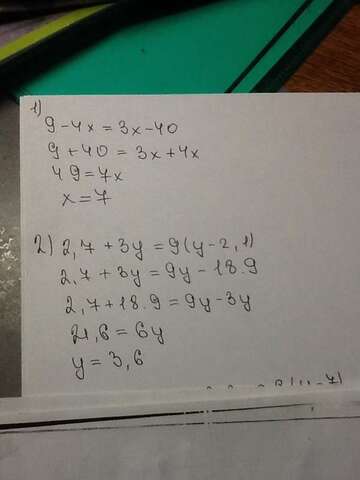 1)
9-4x=3x-40
9+40=3x+4x
49=7x
x=7
2) 2,7+3y=9(y-2,1)
2,7+3y=9y-18.9
2,7+18.9=9y-3y
21,6=6y
y=3,6